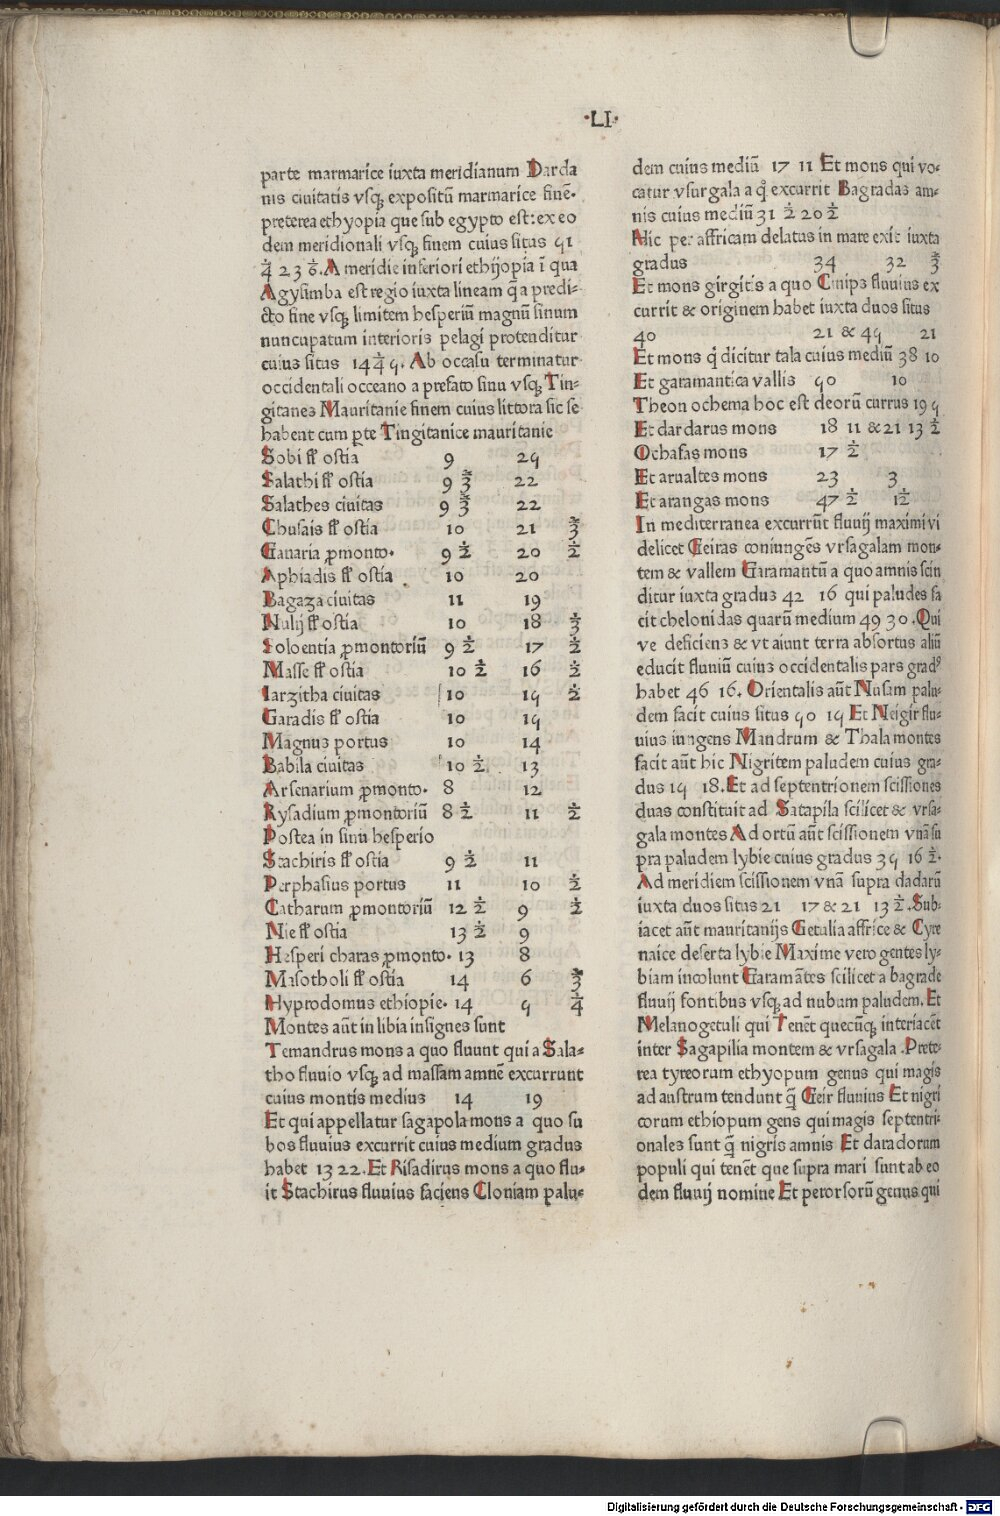 ·LI·
parte marmarice iuxta meridianum Darda
nis ciuitatis vsqꝫ expositū marmarice finē·
preterea ethyopia que sub egypto est: ex eo
dem meridionali vsqꝫ finem cuius situs 51
¼ 23 ⅙. A meridie inferiori ethijopia ī qua
Agysimba est regio iuxta lineam q̄ a predi-
cto fine vsqꝫ limitem hesperiū magnū sinum
nuncupatum interioris pelagi protenditur
cuius situs 14 ¼ 5. Ab occasu terminatur
occidentali occeano a prefato sinu vsqꝫ Tin-
gitanes Mauritanie finem cuius littora sic se
habent cum ꝑte Tingitanice mauritanie
Sobi fl̄ ostia 9 25
Salathi fl̄ ostia 9 ⅔ 22
Salathes ciuitas 9 ⅔ 22
Chusais fl̄ ostia 10 21 ⅔
Ganaria ꝓmonto· 9 ½ 20 ½
Aphiadis fl̄ ostia 10 20
Bagaza ciuitas 11 19
Nulij fl̄ ostia 10 18 ⅓
Soloentia ꝓmontoriū 9 ½ 17 ½
Masse fl̄ ostia 10 ½ 16 ½
Iarzitha ciuitas 10 15 ½
Garadis fl̄ ostia 10 15
Magnus portus 10 14
Babila ciuitas 10 ½ 13
Arsenarium ꝓmonto· 8 12
Rysadium ꝓmontoriū 8 ½ 11 ½
Postea in sinu hesperio
Stachiris fl̄ ostia 9 ½ 11
Perphasius portus 11 10 ½
Catharum ꝓmontoriū 12 ½ 9 ½
Nie fl̄ ostia 13 ½ 9
Hesperi charas ꝓmonto· 13 8
Masotholi fl̄ ostia 14 6 ⅔
Hyprodomus ethiopie· 14 5 ¼
Montes aūt in libia insignes sunt
Temandrus mons a quo fluunt qui a Sala-
tho fluuio vsqꝫ ad massam amnē excurrunt
cuius montis medius 14 19
Et qui appellatur sagapola mons a quo su
bos fluuius excurrit cuius medium gradus
habet 13 22. Et Risadirus mons a quo flu-
it Stachirus fluuius faciens Cloniam palu-
dem cuius mediū 17 11 Et mons qui vo-
catur vsurgala a q̊ excurrit Bagradas am-
nis cuius mediū 31 ½ 20 ½
Hic per affricam delatus in mare exit iuxta
gradus 34 32 ⅔
Et mons girgitis a quo Cinips fluuius ex
currit & originem habet iuxta duos situs
40 21 & 45 21
Et mons q̇ dicitur tala cuius mediū 38 10
Et garamantica vallis 50 10
Theon ochema hoc est deorū currus 19 5
Et dardarus mons 18 11 & 21 13 ½
Ochafas mons 17 ½
Et arualtes mons 23 3
Et arangas mons 47 ½ 1½
In mediterranea excurrūt fluuij maximi vi
delicet Geiras coniungēs vrsagalam mon-
tem & vallem Garamantū a quo amnis scin
ditur iuxta gradus 42 16 qui paludes fa
cit chelonidas quarū medium 49 30. Qui
ve deficiens & vt aiunt terra absortus aliū
educit fluuiū cuius occidentalis pars gradꝰ
habet 46 16. Orientalis aūt Nusam palu-
dem facit cuius situs 50 15 Et Neigir flu-
uius iungens Mandrum & Thala montes
facit aūt hic Nigritem paludem cuius gra-
dus 15 18. Et ad septentrionem scissiones
duas constituit ad Satapila scilicet & vrsa-
gala montes Ad ortū aūt scissionem vnā su
pra paludem lybie cuius gradus 35 16 ½·
Ad meridiem scissionem vnā supra dadarū
iuxta duos situs 21 17 & 21 13 ½. Sub-
iacet aūt mauritanijs Getulia affrice & Cyre
naice deserta lybie Maxime vero gentes ly-
biam incolunt Garamātes scilicet a bagrade
fluuij fontibus vsqꝫ ad nubam paludem. Et
Melanogetuli qui Tenēt quecūqꝫ interiacēt
inter Sagapilia montem & vrsagala. Prete-
rea tyreorum ethyopum genus qui magis
ad austrum tendunt q̄ Geir fluuius Et nigri
corum ethiopum gens qui magis septentri-
onales sunt q̄ nigris amnis Et daradorum
populi qui tenēt que supra mari sunt ab eo
dem fluuij nomine Et perorsorū genus qui
Digitalisierung gefördert durch die Deutsche Forschungsgemeinschaft - DFG